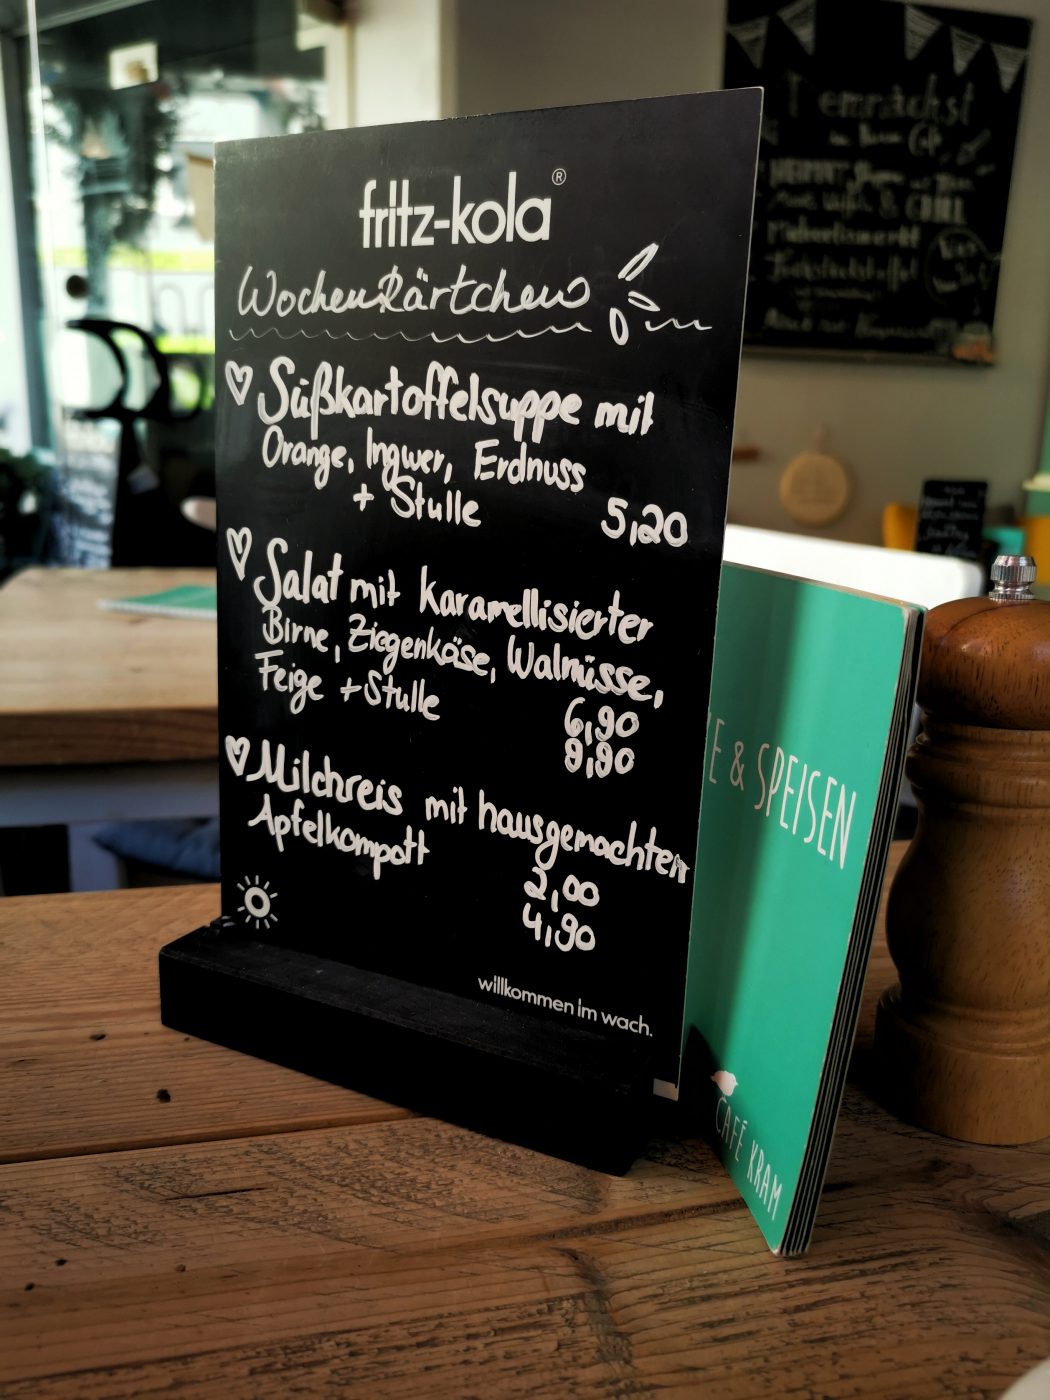 fritz-kola®
Wochenkärtchen
Süßkartoffelsuppe mit
Orange, Ingwer, Erdnuss
+ Stulle
5,20
Salat mit karamellisierter
Birne, Ziegenkäse, Walnüsse,
Feige + Stulle
6,90
9,90
Milchreis mit hausgemachten
Apfelkompott
2,00
4,90
willkommen im wach.
E & SPEISEN
CAFÉ KRAM
Demnächst